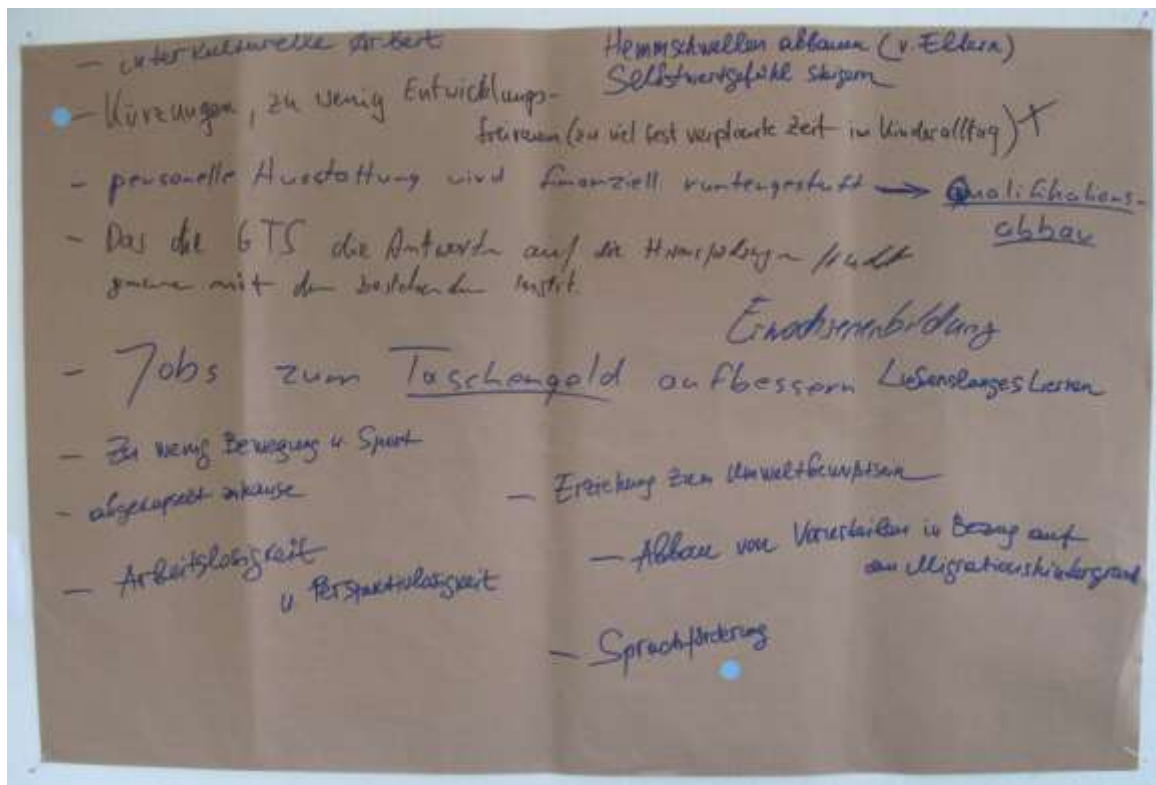 - interkulturelle Arbeit
Hemmschwellen abbauen (v. Eltern)
Selbstwertgefühl steigern
- Kürzungen, zu wenig Entwicklungs-
freiraum (zu viel fest verplante Zeit im Kinderalltag) X
- personelle Ausstattung wird finanziell runtergestuft → Qualifikations-
abbau
- Das die GTS die Antworten auf die
mit den bestehenden Instit.
Erwachsenenbildung
- Jobs zum Taschengeld aufbessern
Lebenslanges Lernen
- Zu wenig Bewegung u. Sport
- abgekapselt zuhause
- Arbeitslosigkeit
u Perspektivlosigkeit
- Erziehung zum Umweltbewußtsein
- Abbau von Vorurteilen in Bezug auf
den Migrationshintergrund
- Sprachförderung